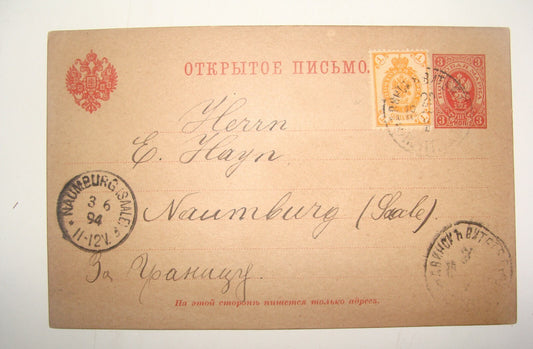 ОТКРЫТОЕ ПИСЬМО.
1 1
1 1
3 3
3 3
Herrn
E. Hayn
Naumburg (Saale)
NAUMBURG (SAALE)
3 6
94
11-12V.
За границу.
На этой сторонѣ пишется только адресъ.